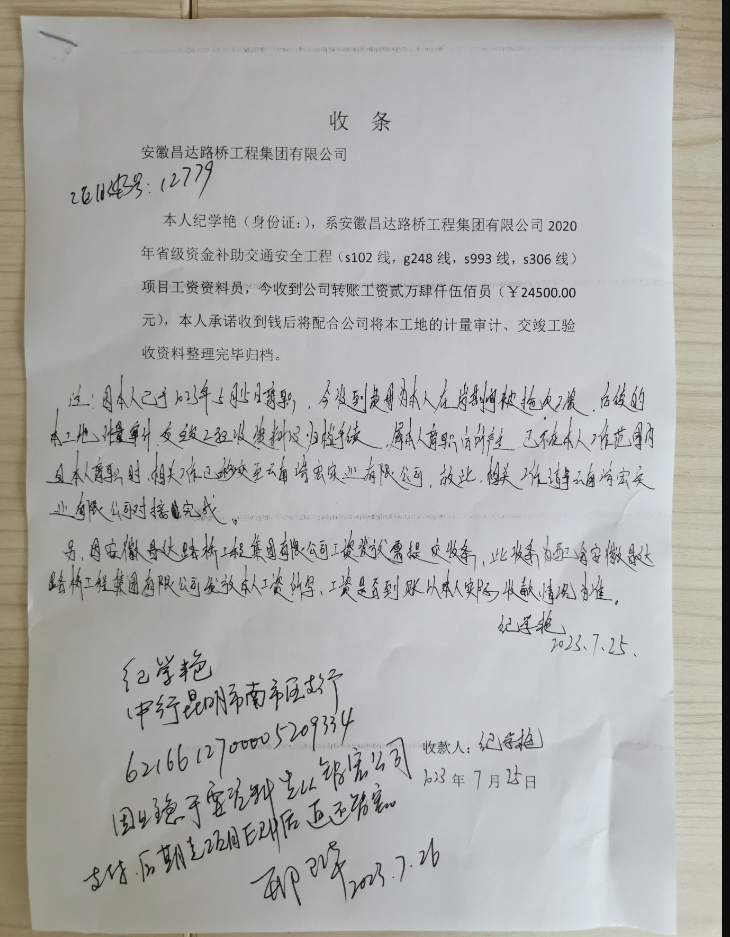 收 条
安徽昌达路桥工程集团有限公司
项目编号：12779
本人纪学艳（身份证：），系安徽昌达路桥工程集团有限公司 2020
年省级资金补助交通安全工程（s102 线，g248 线，s993 线，s306 线）
项目工资资料员，今收到公司转账工资贰万肆仟伍佰员（￥24500.00
元），本人承诺收到钱后将配合公司将本工地的计量审计、交竣工验
收资料整理完毕归档。
注：因本人已于2023年5月15日离职，今收到费用为本人在岗期间被拖欠工资，后续的
本工地计量审计、交竣工验收资料归档手续，属本人离职后所产生，已不在本人工作范围内
且本人离职时，相关工作已移交至云南 宏实业有限公司，故此，相关工作请与云南 宏实
业有限公司对接完成。
另，因安徽昌达路桥工程集团有限公司工资发放需提交收条，此收条为配合安徽昌达
路桥工程集团有限公司发放本人工资所写，工资是否到账以本人实际收款情况为准。
纪学艳
2023.7.25.
纪学艳
中行昆明市南市区支行
6216612700005209334
因业 于 资料 先从 宏公司
支付，后期 项目 后 还
2023.7.26
收款人：纪学艳
2023 年 7 月 25 日